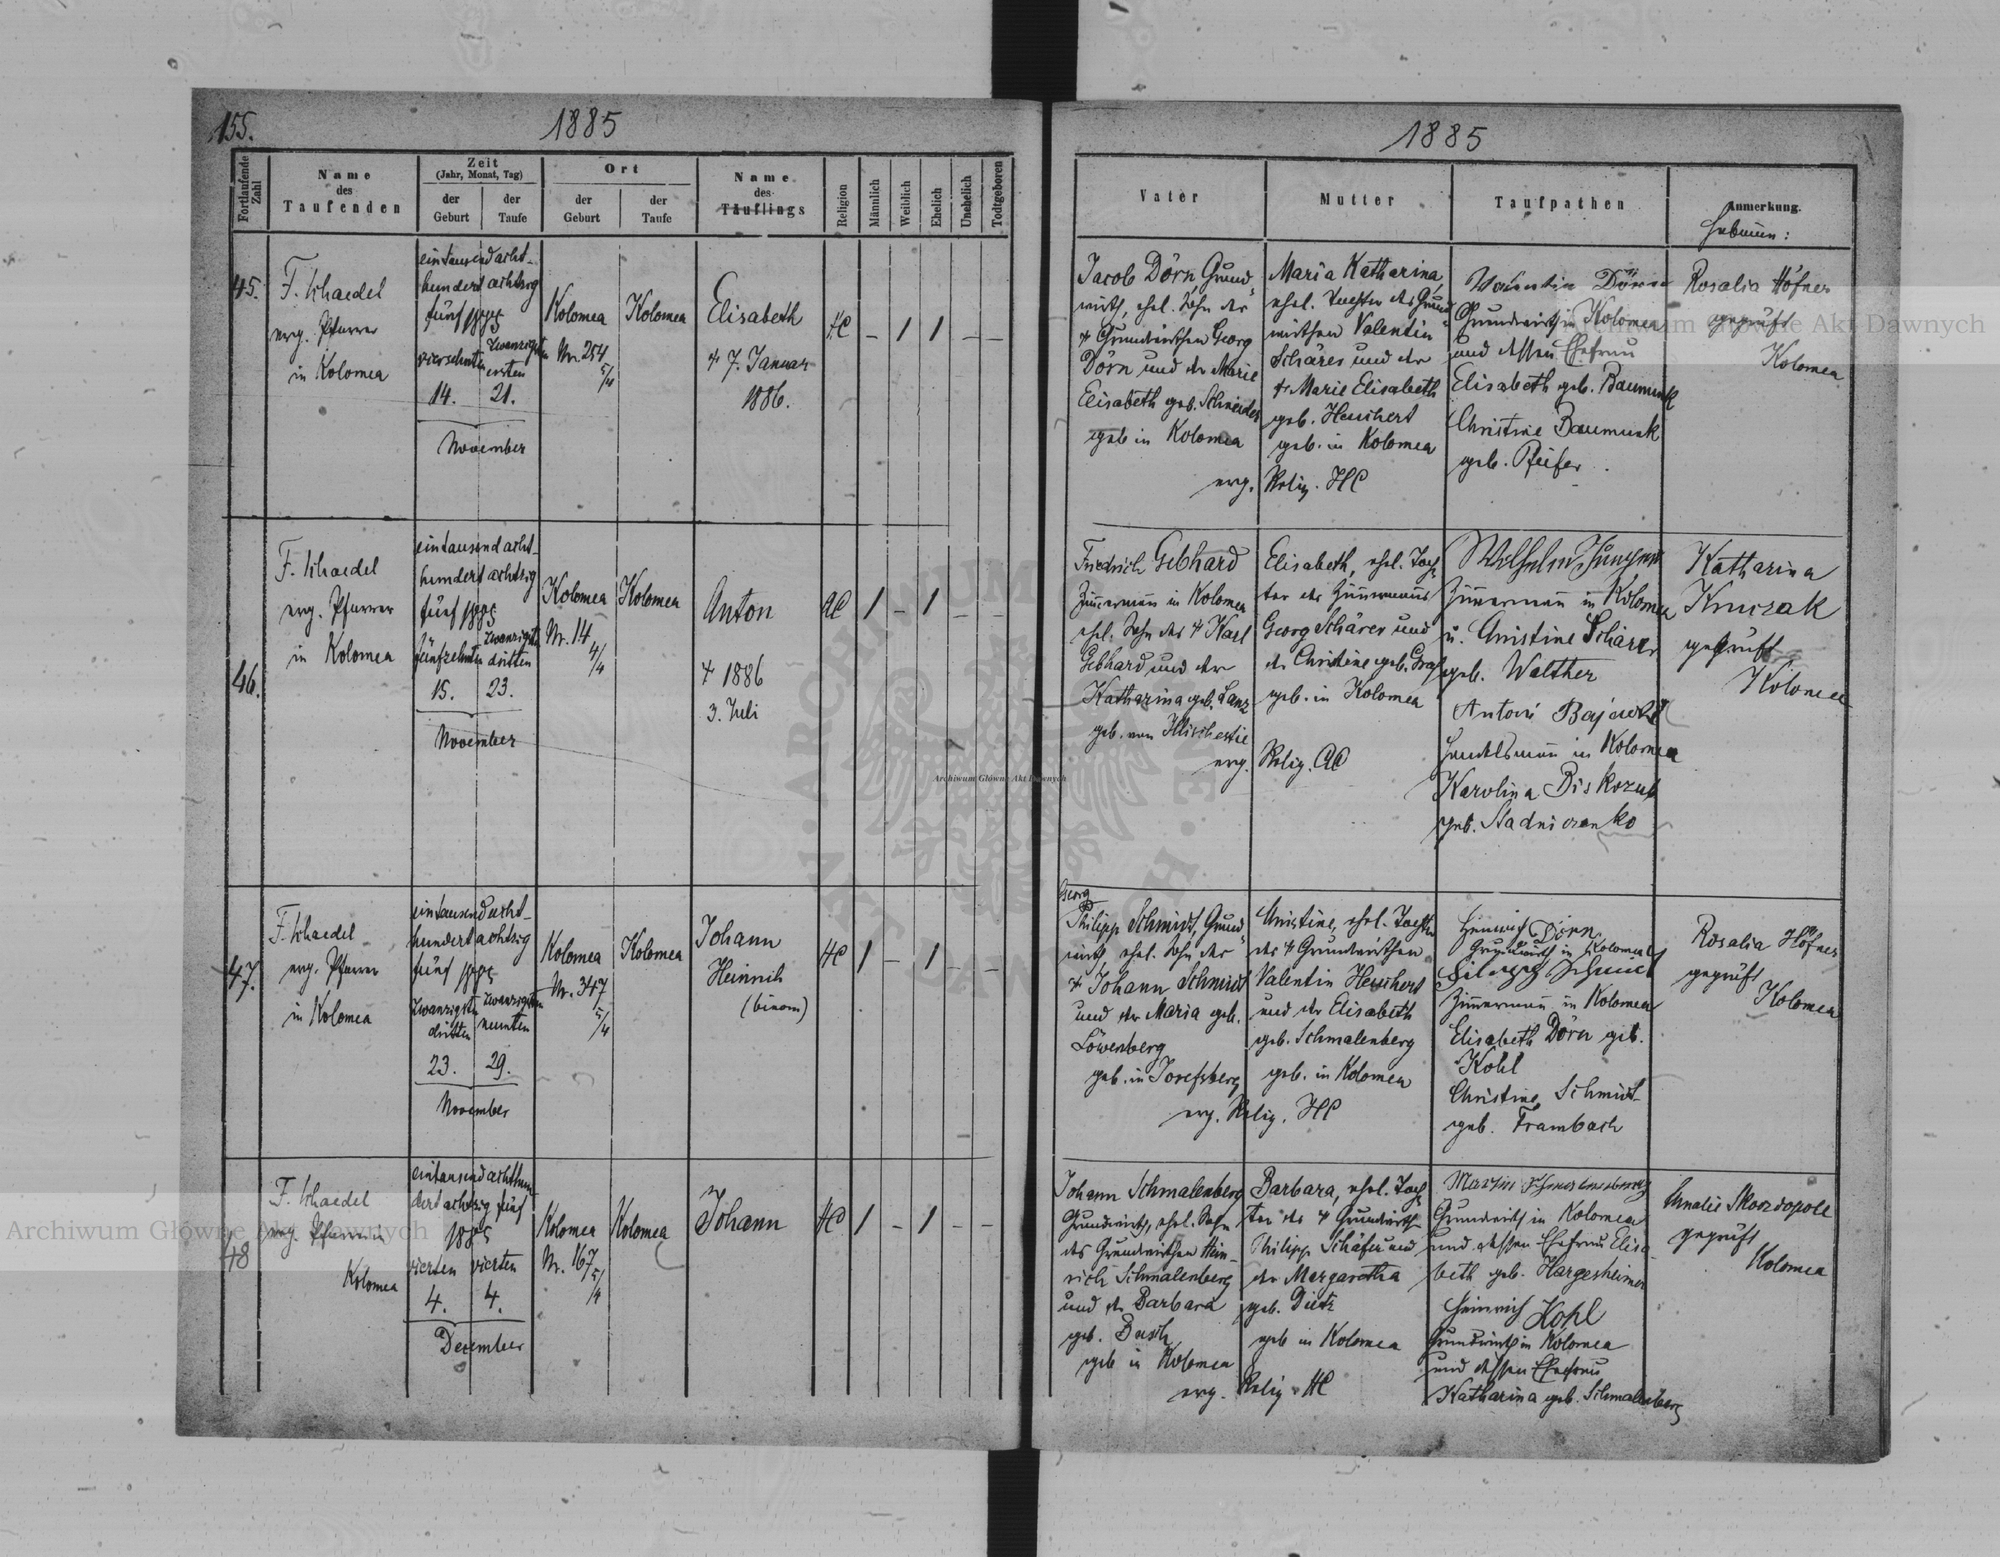 155.
1885
Fortlaufende Zahl
Name
des
Taufenden
Zeit
(Jahr, Monat, Tag)
der
Geburt
der
Taufe
Ort
der
Geburt
der
Taufe
Name
des
Täuflings
Religion
Männlich
Weiblich
Ehelich
Unehelich
Todtgeboren
45.
F. Schaedel
evg. Pfarrer
in Kolomea
eintausend acht-
hundert achtzig
fünf 1885
vierzehnten
zwanzigsten
ersten
14. 21.
November
Kolomea
Nr. 254
5/4
Kolomea
Elisabeth
+ 7. Januar
1886.
HC – 1 1 – –
46.
F. Schaedel
evg. Pfarrer
in Kolomea
eintausend acht-
hundert achtzig
fünf 1885
fünfzehnten
zwanzigsten
dritten
15. 23.
November
Kolomea
Nr. 14
4/4
Kolomea
Anton
+ 1886
3. Juli
AC 1 – 1 – –
47.
F. Schaedel
evg. Pfarrer
in Kolomea
eintausend acht-
hundert achtzig
fünf 1885
zwanzigsten
dritten
zwanzigsten
neunten
23. 29.
November
Kolomea
Nr. 347
5/4
Kolomea
Johann
Heinrich
(binom)
HC 1 – 1 – –
48
F. Schaedel
evg. Pfarrer in
Kolomea
eintausend achthun-
dert achtzig fünf
1885
vierten vierten
4. 4.
December
Kolomea
Nr. 167
5/4
Kolomea
Johann
HC 1 – 1 – –
1885
Vater
Mutter
Taufpathen
Anmerkung.
Hebamme:
Jacob Dörn Grund-
wirth, ehel. Sohn der
+ Grundwirthen Georg
Dörn und der Marie
Elisabeth geb. Schneider
geb in Kolomea
Maria Katharina,
ehel. Tochter des Grund-
wirthen Valentin
Schärer und der
+ Marie Elisabeth
geb. Heuchert
geb. in Kolomea
evg. Relig. HC
Valentin Dörn
Grundwirth in Kolomea
und dessen Ehefrau
Elisabeth geb. Baumunk
Christine Baumunk
geb. Pfeifer
Rosalia Höfner
geprüft
Kolomea
Friedrich Gebhard
Zimmermann in Kolomea
ehl. Sohn des + Karl
Gebhard und der
Katharina geb. Lanz
geb. von
Elisabeth, ehel. Toch-
ter des Zimmermanns
Georg Schärer und
der Christine geb. Graf
geb. in Kolomea
evg. Relig. AC
Wilhelm
Zimmermann in Kolomea
u. Christine Schärer
geb. Walther
Antoni
Handelsmann in Kolomea
Karolina Biskozub
geb. Stadniczenko
Katharina
Kruczak
geprüft
Kolomea
Georg
Philipp Schmidt, Grund-
wirth, ehel. Sohn der
+ Johann Schmidt
und der Maria geb.
Löwenberg
geb. in Josefsberg
Christine, ehel. Tochter
des + Grundwirthen
Valentin Heuchert
und der Elisabeth
geb. Schmalenberg
geb. in Kolomea
evg. Relig. HC
Heinrich Dörn
Grundwirth in Kolomea
Schmidt
Zimmermann in Kolomea
Elisabeth Dörn geb.
Kohl
Christine Schmidt
geb. Frambach
Rosalia Höfner
geprüft
Kolomea
Johann Schmalenberg
Grundwirth, ehel. Sohn
des Grundwirthen Hein-
rich Schmalenberg
und der Barbara
geb. Busch
geb in Kolomea
Barbara, ehel. Toch-
ter des + Grundwirth
Philipp Schäfer und
der Margaretha
geb. Dietz
geb in Kolomea
evg. Relig HC
Martin Schmalenberg
Grundwirth in Kolomea
und dessen Ehefrau Elisa-
beth geb. Hargesheimer
Heinrich Kohl
Grundwirth in Kolomea
und dessen Ehefrau
Katharina geb. Schmalenberg
Amalie Skoozdopole
geprüft
Kolomea
Archiwum Główne Akt Dawnych
Archiwum Główne Akt Dawnych
Archiwum Główne Akt Dawnych